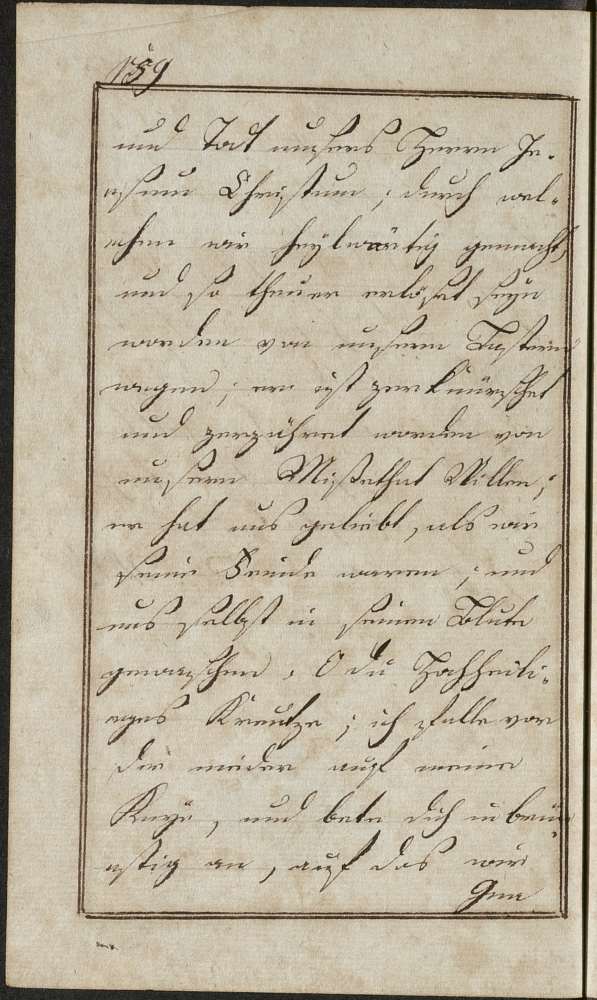 159
und Tod unsers Herrn Je-
sum Christum; durch wel-
chen wir heylwürtig gemacht,
und so theuer erlöset seyn
worden von unsern Lastern
wegen; er ist zerknürschet
und worden von
unsern Missethat Willen;
er hat uns geliebt, als wir
seine Feinde waren; und
uns selbst in seinen Blute
gewaschen. O du Hochheili-
ges Kreutze; ich falle vor
dir nieder auf meine
Knye, und bete dich inbrün-
stig an, auf das wir